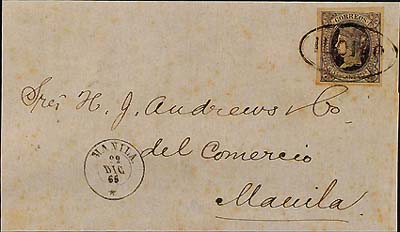 CORREOS
Sres H. J. Andrews & Co.
del Comercio
Manila
MANILA
22
DIC
65